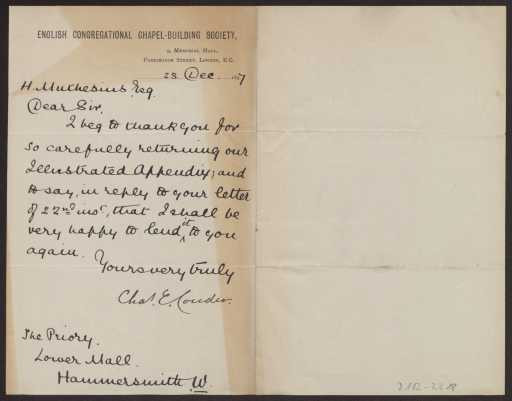 ENGLISH CONGREGATIONAL CHAPEL-BUILDING SOCIETY,
9, MEMORIAL HALL,
FARRINGDON STREET, LONDON, E.C.
23 Dec. 97
H. Muthesius. Esq.
Dear Sir,
I beg to thank you for
so carefully returning our
Illustrated Appendix; and
to say, in reply to your letter
of 22nd inst, that I shall be
very happy to lend it to you
again.
Yours very truly
Chas. E. Conder.
The Priory.
Lower Mall.
Hammersmith. W.